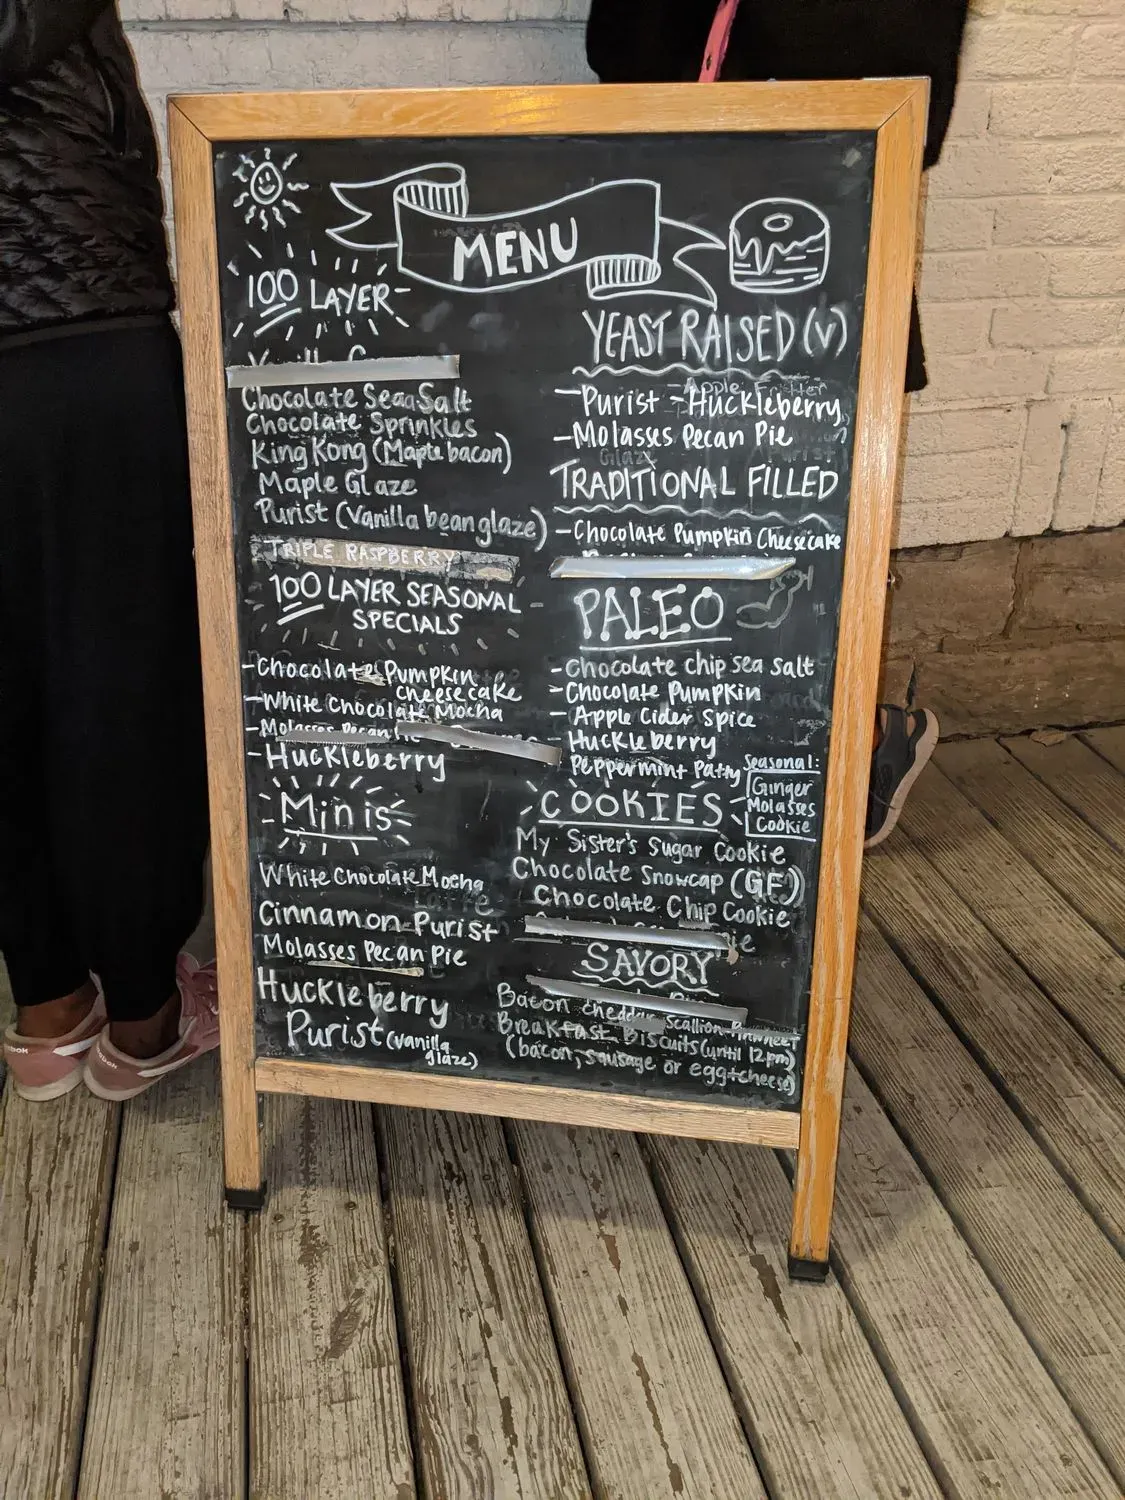 MENU
100 LAYER
Chocolate Sea Salt
Chocolate Sprinkles
King Kong (Maple bacon)
Maple Glaze
Purist (Vanilla bean glaze)
TRIPLE RASPBERRY
100 LAYER SEASONAL
SPECIALS
-Chocolate Pumpkin
cheesecake
-White Chocolate Mocha
- Molasses Pecan Pie
- Huckleberry
Minis
White Chocolate Mocha
Cinnamon Purist
Molasses Pecan Pie
Huckleberry
Purist (vanilla
glaze)
YEAST RAISED (V)
Apple Fritter
-Purist -Huckleberry
-Molasses Pecan Pie
Glaze
TRADITIONAL FILLED
-Chocolate Pumpkin Cheesecake
PALEO
-Chocolate chip sea salt
-Chocolate Pumpkin
- Apple Cider Spice
-Huckleberry
Peppermint Patty
Seasonal:
Ginger
Molasses
Cookie
COOKIES
My Sister's Sugar Cookie
Chocolate Snowcap (GF)
Chocolate Chip Cookie
SAVORY
Bacon cheddar scallion
Breakfast Biscuits (until 12pm)
(bacon, sausage or egg+cheese)
Reebok